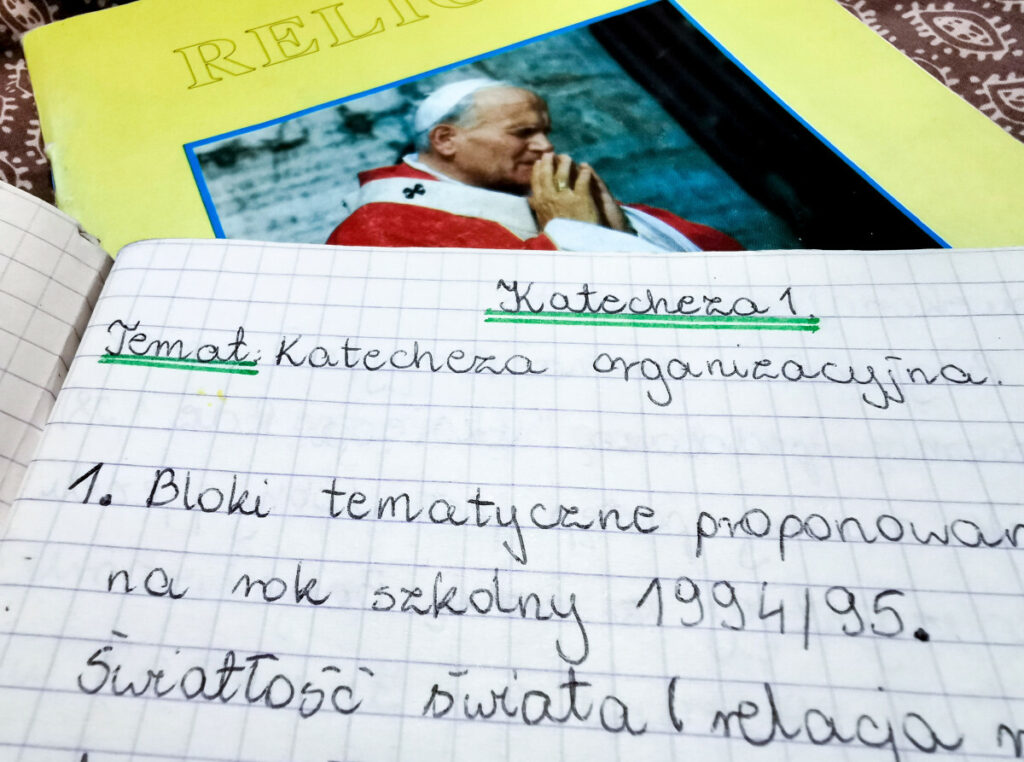 RELIG
Katecheza 1.
Temat: Katecheza organizacyjna.
1. Bloki tematyczne proponowan
na rok szkolny 1994/95.
Światłość świata (relacja